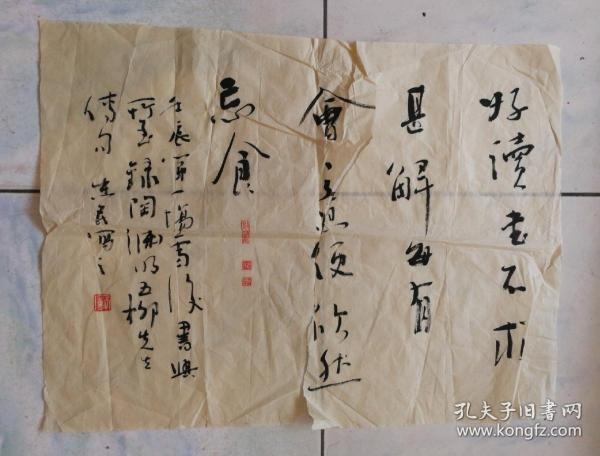 好讀書不求
甚解每有
會意便欣然
忘食
壬辰第一場雪後書興
所至錄陶淵明五柳先生
傳句 寫之
孔夫子旧书网
www.kongfz.com